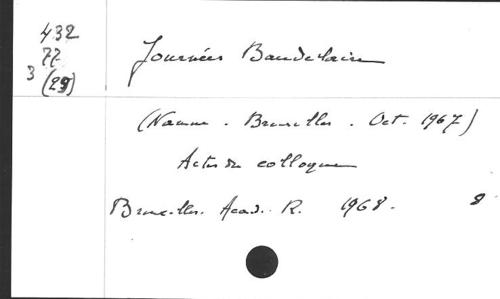 432
77
3 (29)
Journées Baudelaire
(Namur - Bruxelles. Oct. 1967)
Actes du colloque
Bruxelles. Acad. R. 1968. 8